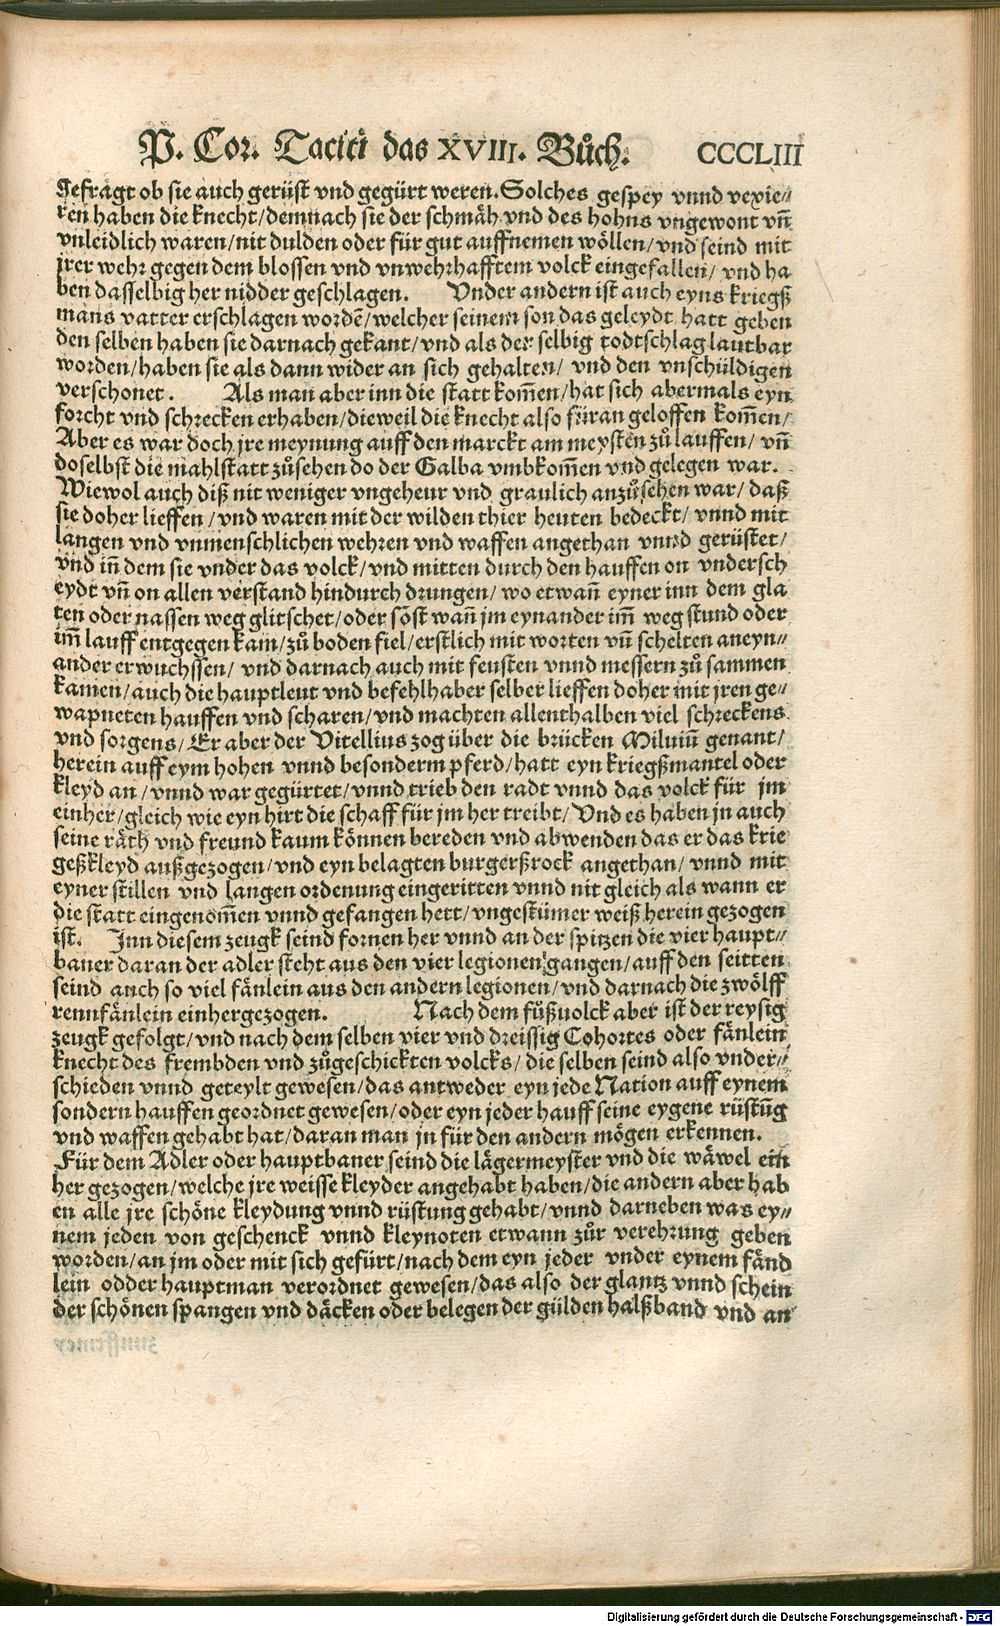 P. Cor. Taciti das XVIII. Bůch. CCCLIII
gefragt ob sie auch gerüst vnd gegürt weren. Solches gespey vnnd vexie⸗
ren haben die knecht/demnach sie der schmäh vnd des hohns vngewont vñ
vnleidlich waren/nit dulden oder für gut auffnemen wöllen/vnd seind mit
jrer wehr gegen dem blossen vnd vnwehrhafftem volck eingefallen/ vnd ha
ben dasselbig her nidder geschlagen. Vnder andern ist auch eyns kriegß
mans vatter erschlagen wordẽ/welcher seinem son das geleydt hatt geben
den selben haben sie darnach gekant/vnd als der selbig todtschlag lautbar
worden/haben sie als dann wider an sich gehalten/ vnd den vnschüldigen
verschonet. Als man aber inn die statt kom̃en/hat sich abermals eyn
forcht vnd schrecken erhaben/dieweil die knecht also füran geloffen kom̃en/
Aber es war doch jre meynung auff den marckt am meysten zů lauffen/ vñ
doselbst die mahlstatt zůsehen do der Galba vmbkom̃en vnd gelegen war.
Wiewol auch diß nit weniger vngeheur vnd graulich anzůsehen war/ daß
sie doher lieffen/vnd waren mit der wilden thier heuten bedeckt/ vnnd mit
langen vnd vnmenschlichen wehren vnd waffen angethan vnnd gerüstet/
vnd iñ dem sie vnder das volck/vnd mitten durch den hauffen on vndersch
eydt vñ on allen verstand hindurch drungen/ wo etwañ eyner inn dem gla
ten oder nassen weg glitschet/oder söst wañ jm eynander im̃ weg stund oder
im̃ lauff entgegen kam/zů boden fiel/erstlich mit worten vñ schelten aneyn⸗
ander erwuchssen/ vnd darnach auch mit feusten vnnd messern zů sammen
kamen/auch die hauptleut vnd befehlhaber selber lieffen doher mit jren ge⸗
wapneten hauffen vnd scharen/vnd machten allenthalben viel schreckens
vnd sorgens/ Er aber der Vitellius zog über die brücken Miluiũ genant/
herein auff eym hohen vnnd besonderm pferd/hatt eyn kriegßmantel oder
kleyd an/vnnd war gegürtet/vnnd trieb den radt vnnd das volck für jm
einher/gleich wie eyn hirt die schaff für jm her treibt/ Vnd es haben jn auch
seine räth vnd freund kaum können bereden vnd abwenden das er das krie
geßkleyd außgezogen/vnd eyn belagten burgerßrock angethan/ vnnd mit
eyner stillen vnd langen ordenung eingeritten vnnd nit gleich als wann er
die statt eingenom̃en vnnd gefangen hett/vngestümer weiß herein gezogen
ist. Inn diesem zeugk seind fornen her vnnd an der spitzen die vier haupt⸗
baner daran der adler steht aus den vier legionen gangen/auff den seitten
seind auch so viel fänlein aus den andern legionen/vnd darnach die zwölff
rennfänlein einhergezogen. Nach dem fůßuolck aber ist der reysig
zeugk gefolgt/vnd nach dem selben vier vnd dreissig Cohortes oder fänlein
knecht des frembden vnd zůgeschickten volcks/ die selben seind also vnder⸗
schieden vnnd geteylt gewesen/das antweder eyn jede Nation auff eynem
sondern hauffen geordnet gewesen/oder eyn jeder hauff seine eygene rüstũg
vnd waffen gehabt hat/daran man jn für den andern mögen erkennen.
Für dem Adler oder hauptbaner seind die lägermeyster vnd die wäwel ein
her gezogen/welche jre weisse kleyder angehabt haben/die andern aber hab
en alle jre schöne kleydung vnnd rüstung gehabt/vnnd darneben was ey⸗
nem jeden von geschenck vnnd kleynoten etwann zůr verehrung geben
worden/an jm oder mit sich gefürt/nach dem eyn jeder vnder eynem fänd
lein odder hauptman verordnet gewesen/das also der glantz vnnd schein
der schönen spangen vnd däcken oder belegen der gülden halßband vnd an
Digitalisierung gefördert durch die Deutsche Forschungsgemeinschaft - DFG